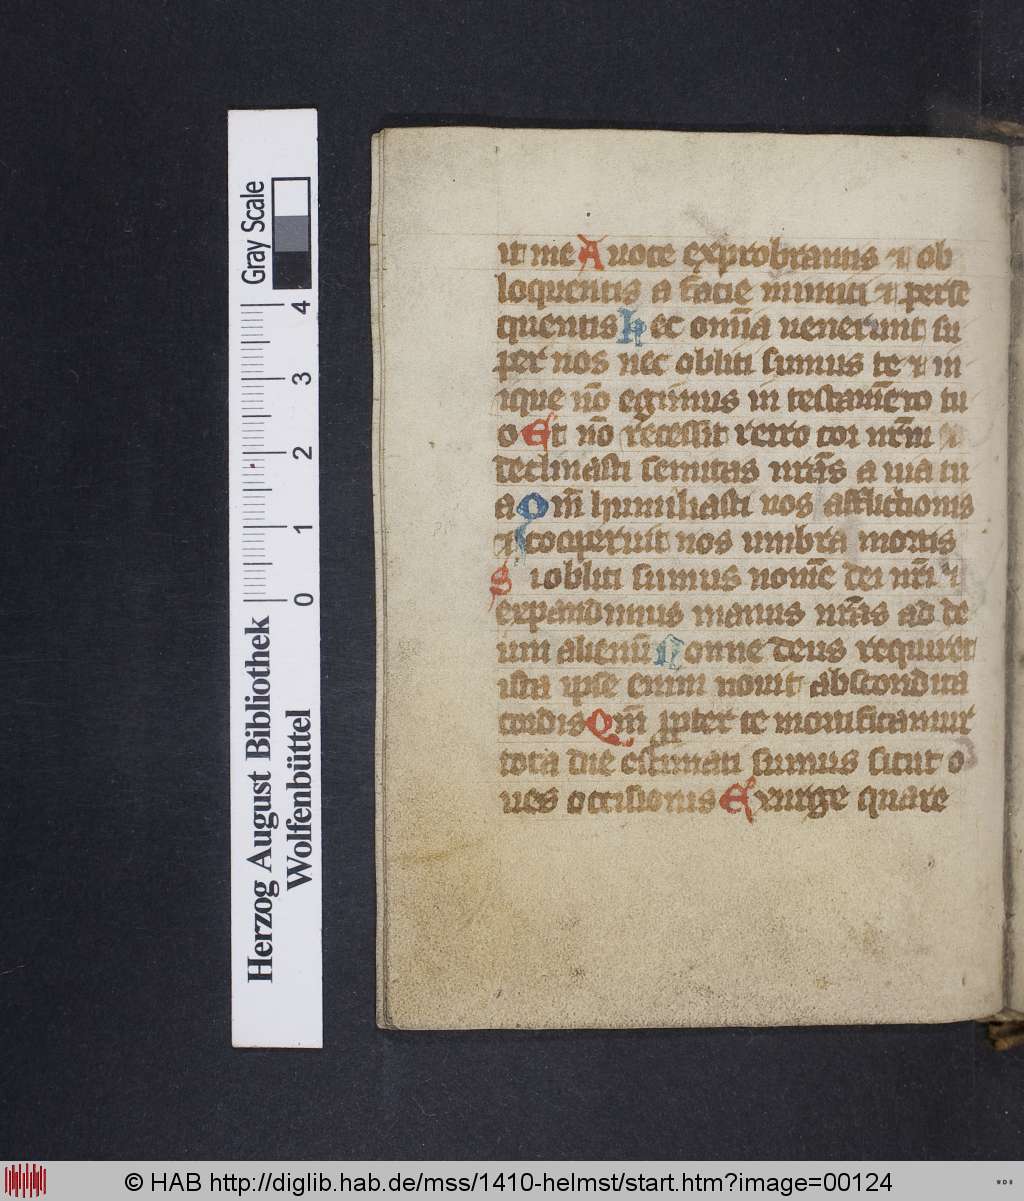 it me A uoce exprobrantis ⁊ ob
loquentis a facie inimici ⁊ perse
quentis hec om̄ia uenerunt su
per nos nec obliti sumus te ⁊ in
ique nō egimus in testam̄eto tu
o Et nō recessit retro cor nr̄m ⁊
declinasti semitas nr̄as a uia tu
a Qm̄ humiliasti nos afflictionis
⁊ cooperuit nos umbra mortis
Si obliti sumus nom̄e dei nr̄i ⁊
expandimus manus nr̄as ad de
um alienū Nonne deus requiret
ista ipse enim nouit abscondita
cordis Qm̄ ꝓpter te mortificamur
tota die estimati sumus sicut o
ues occisionis Exurge quare
Gray Scale
0 1 2 3 4
Herzog August Bibliothek
Wolfenbüttel
© HAB http://diglib.hab.de/mss/1410-helmst/start.htm?image=00124